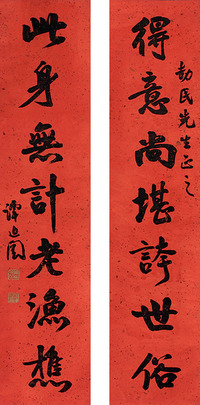 勤民先生正之
得意尚堪誇世俗
此身無計老漁樵
譚延闓